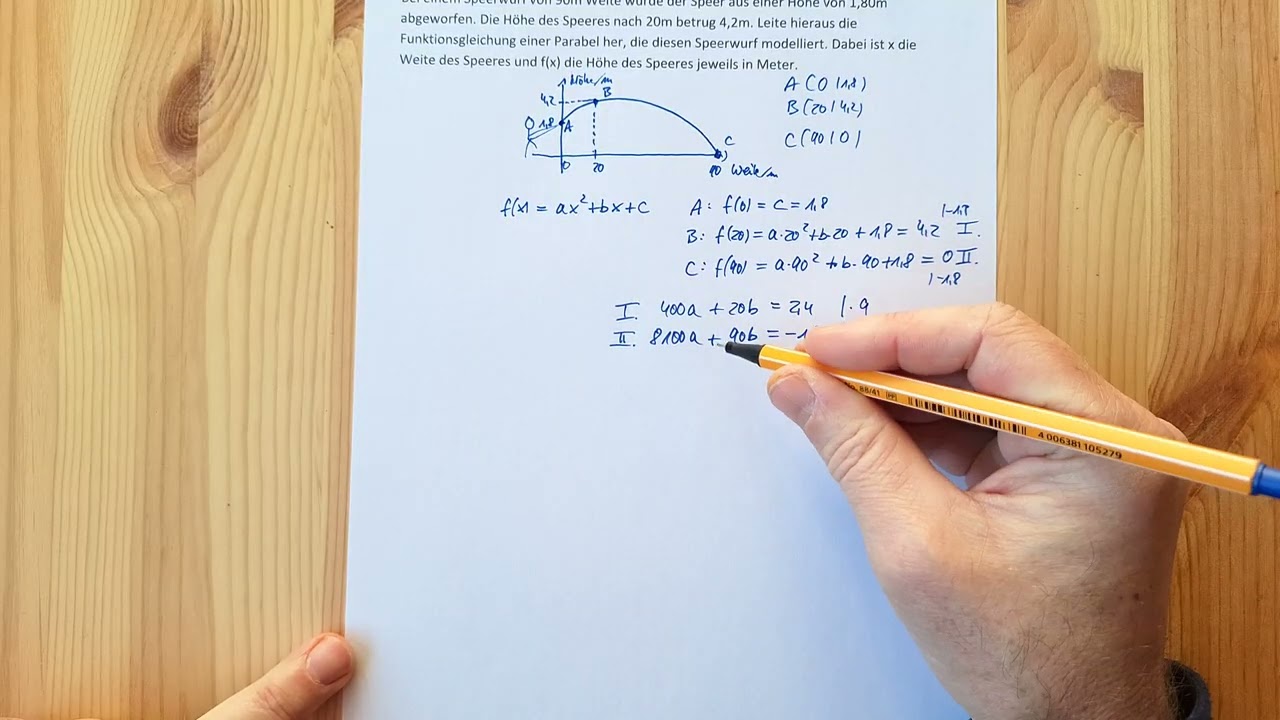 Bei einem Speerwurf von 90m Weite wurde der Speer aus einer Höhe von 1,80m
abgeworfen. Die Höhe des Speeres nach 20m betrug 4,2m. Leite hieraus die
Funktionsgleichung einer Parabel her, die diesen Speerwurf modelliert. Dabei ist x die
Weite des Speeres und f(x) die Höhe des Speeres jeweils in Meter.
Höhe/m
4,2
B
1,8
A
C
0
20
90
Weite/m
A(0|1,8)
B(20|4,2)
C(90|0)
f(x) = ax²+bx+c
A: f(0) = c = 1,8
|-1,8
B: f(20) = a·20²+b·20 + 1,8 = 4,2 I.
C: f(90) = a·90² + b·90+1,8 = 0 II.
|-1,8
I. 400a + 20b = 2,4 |·9
II. 8100a + 90b = -1
No. 88/41
4 006381 105279